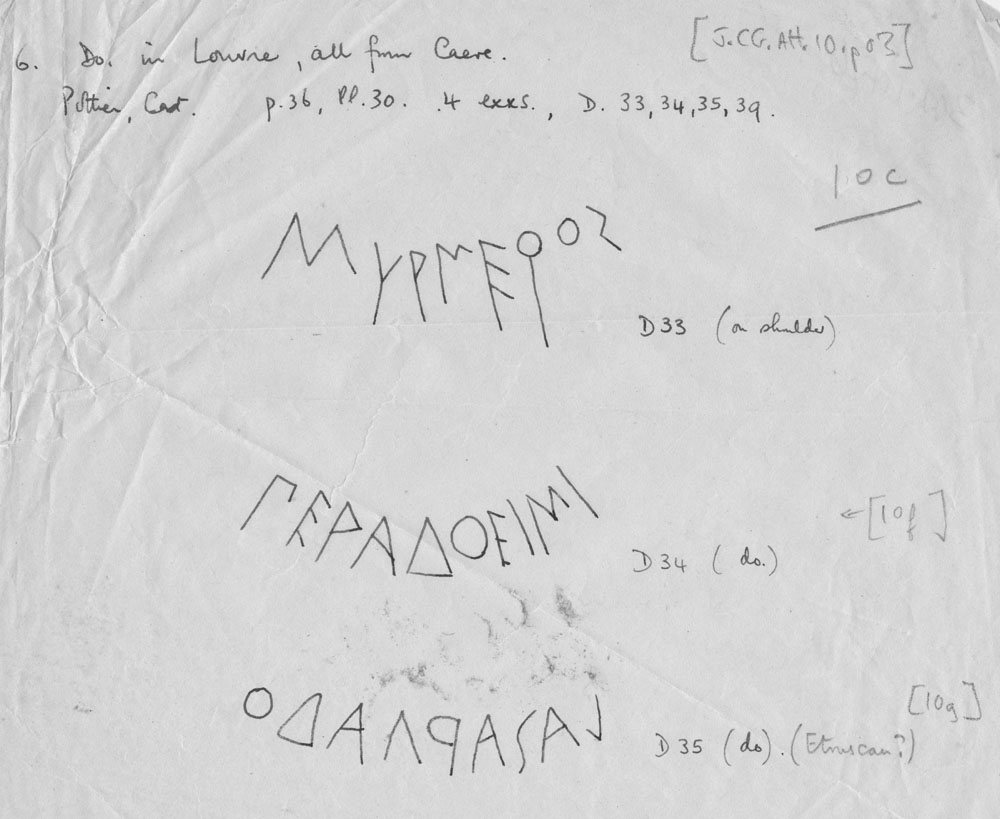 6. Do. in Louvre, all from Caere. [J.CG.AH.10.p03]
Pottier, Cat. p.36, Pl.30. 4 exxs., D. 33,34,35,39.
10c
ΜΥΡΜΕϘΟΣ
D33 (on shoulder)
ΠΕΡΑΔΟΕΙΜΙ
D34 (do.) ←[10f]
[10g]
D35 (do). (Etruscan?)